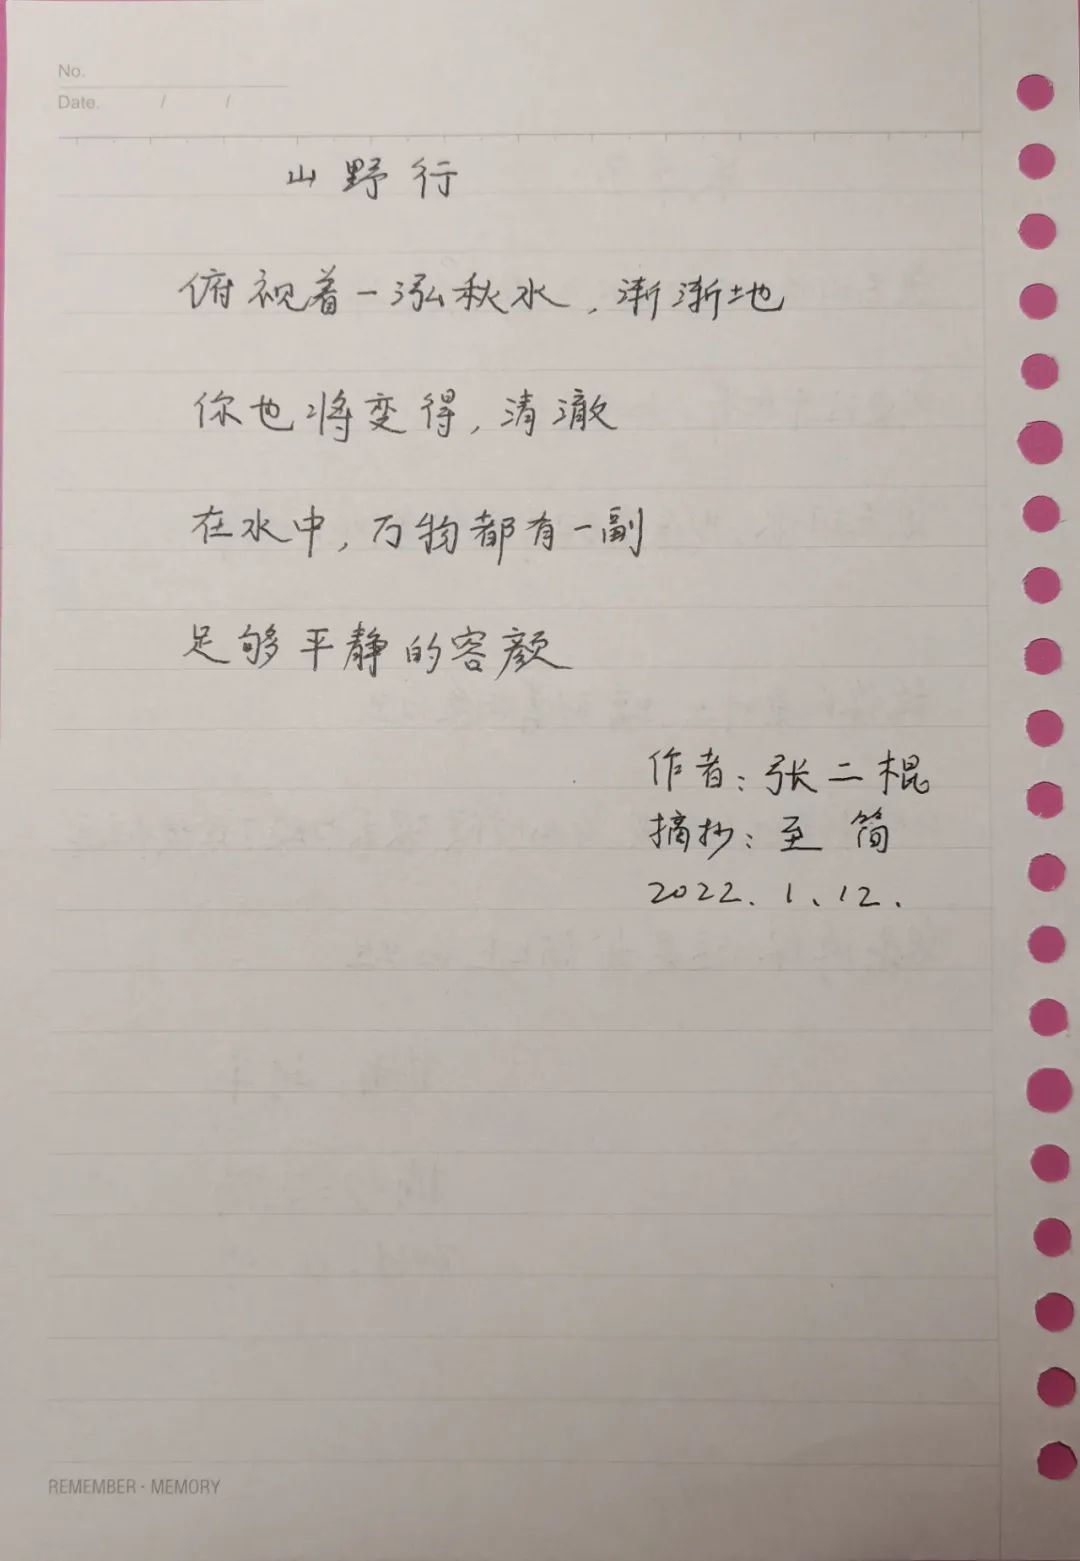 No.
Date. / /
山野行
俯视着一泓秋水，渐渐地
你也将变得，清澈
在水中，万物都有一副
足够平静的容颜
作者：张二棍
摘抄：至简
2022.1.12.
REMEMBER · MEMORY